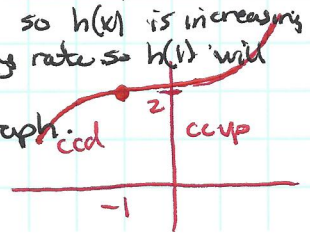 so h(x) is increasing
rate so h(1) will
2
aph.
ccd
ccup
-1